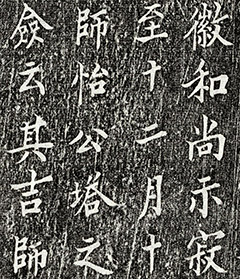 徽和尚示寂
至十二月十
師怡公塔之
僉云其吉師